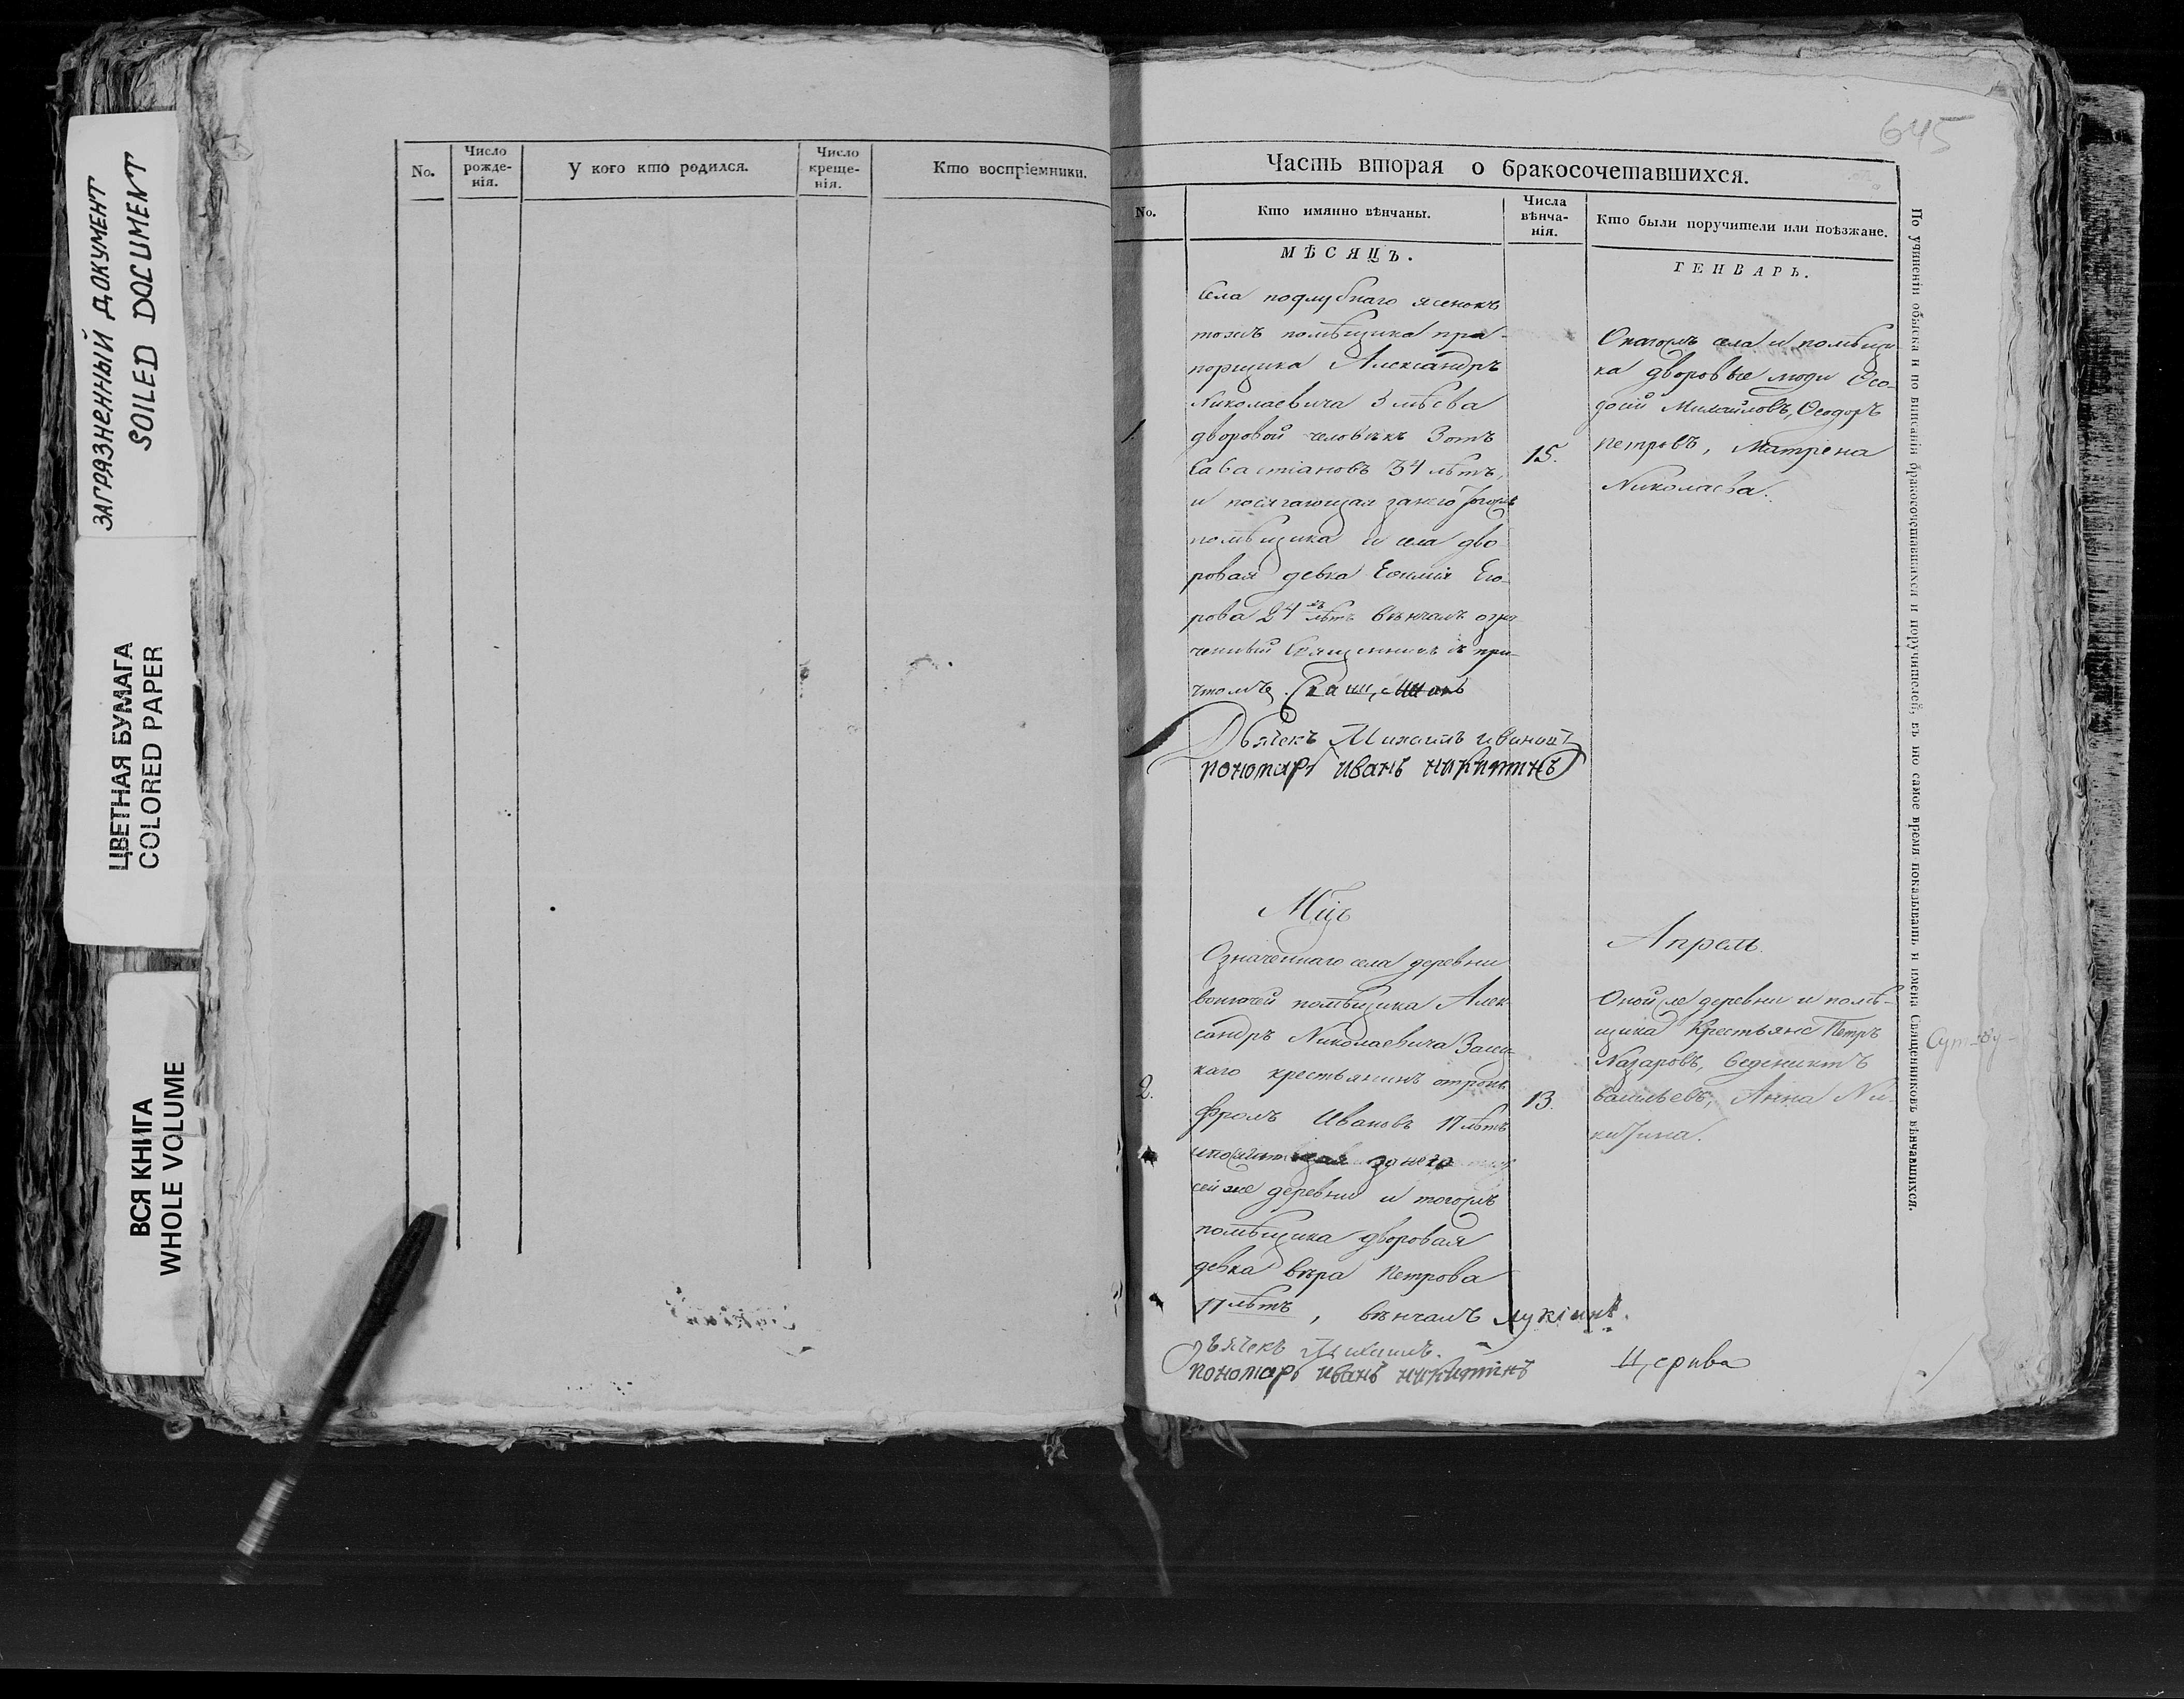 ЗАГРЯЗНЕННЫЙ ДОКУМЕНТ
SOILED DOCUMENT
ЦВЕТНАЯ БУМАГА
COLORED PAPER
ВСЯ КНИГА
WHOLE VOLUME
No.
Число рожде-
нія.
У кого кто родился.
Число креще-
нія.
Кто воспріемники.
645
Часть вторая о бракосочетавшихся.
No.
Кто имянно вѣнчаны.
Числа
вѣнча-
нія.
Кто были поручители или поѣзжане.
МѢСЯЦЪ.
ГЕНВАРЬ.
1.
Села подлубнаго ясенокъ
помѣщика пра-
порщика Александръ
Николаевича
дворовой человѣкъ Зотъ
Савастіановъ 34 лѣтъ,
и посягающая занего
помѣщика и села дво
ровая девка Еѳимія Его-
рова 24 лѣтъ вѣнчалъ озна
ченный Священникъ съ при-
чтомъ.
Дьячекъ Михаилъ Ивановъ
пономарь иванъ никитинъ
15.
села и помѣщи
ка дворовые люди Ѳео-
досій Михайловъ, Ѳеодоръ
Петровъ, Матрена
Николаева.
Мцъ
Апрель.
2.
Означеннаго села деревни
помѣщика Алек-
сандръ Николаевича
крестьянинъ отрокъ
Фролъ Ивановъ 17 лѣтъ
занего
сей же деревни и тогожъ
помѣщика дворовая
девка вѣра Петрова
17 лѣтъ, вѣнчалъ Лукіинъ.
Дьячекъ Михаилъ.
пономарь иванъ никитинъ
13.
Оной же деревни и помѣ-
щика Крестьяне Петръ
Назаровъ, Ведениктъ
Васильевъ, Анна Ни-
китина.
По учиненіи обыска и по вписаніи бракосочетавшихся и поручителей, въ по самое время показывать и имена Священниковъ вѣнчавшихся.